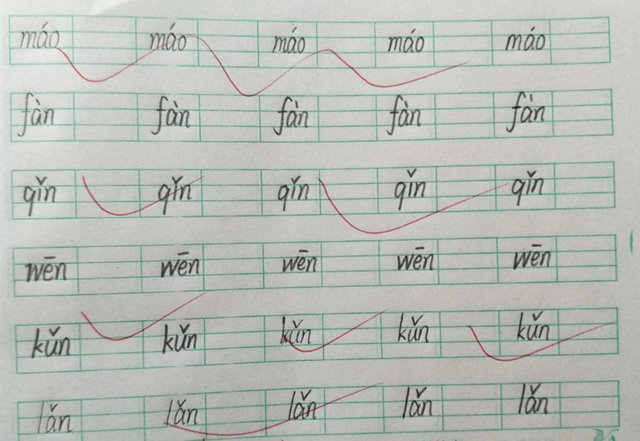 máo máo máo máo máo
fàn fàn fàn fàn fàn
qǐn qǐn qǐn qǐn qǐn
wēn wēn wēn wēn wēn
kǔn kǔn kǔn kǔn kǔn
lǎn lǎn lǎn lǎn lǎn